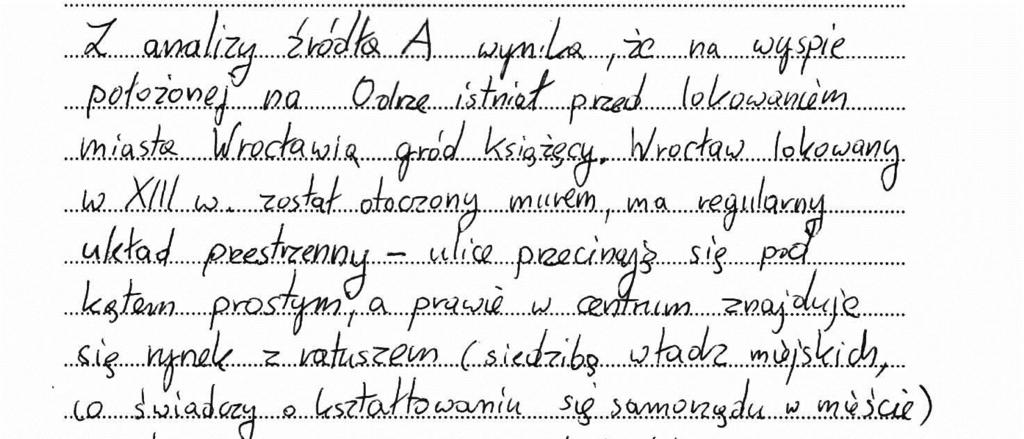 Z analizy źródła A wynika, że na wyspie
położonej na Odrze istniał przed lokowaniem
miasta Wrocławia gród książęcy. Wrocław lokowany
w XIII w. został otoczony murem, ma regularny
układ przestrzenny – ulice przecinają się pod
kątem prostym, a prawie w centrum znajduje
się rynek z ratuszem (siedzibą władz miejskich,
co świadczy o kształtowaniu się samorządu w mieście)